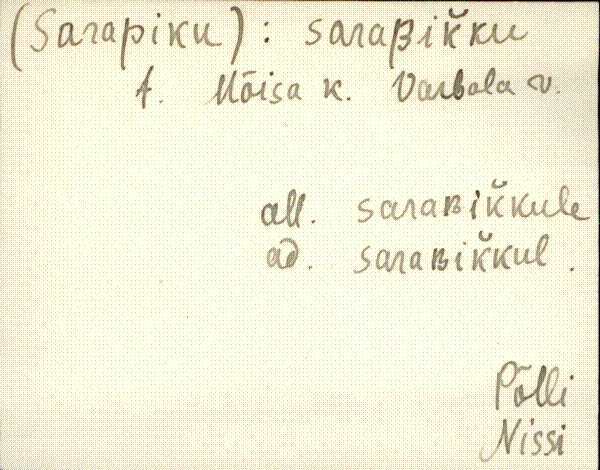 (Sarapiku): saraʙik̆ku
t. Mõisa k. Varbola v.
all. saraʙik̆kule
ad. saraʙik̆kul.
Põlli
Nissi